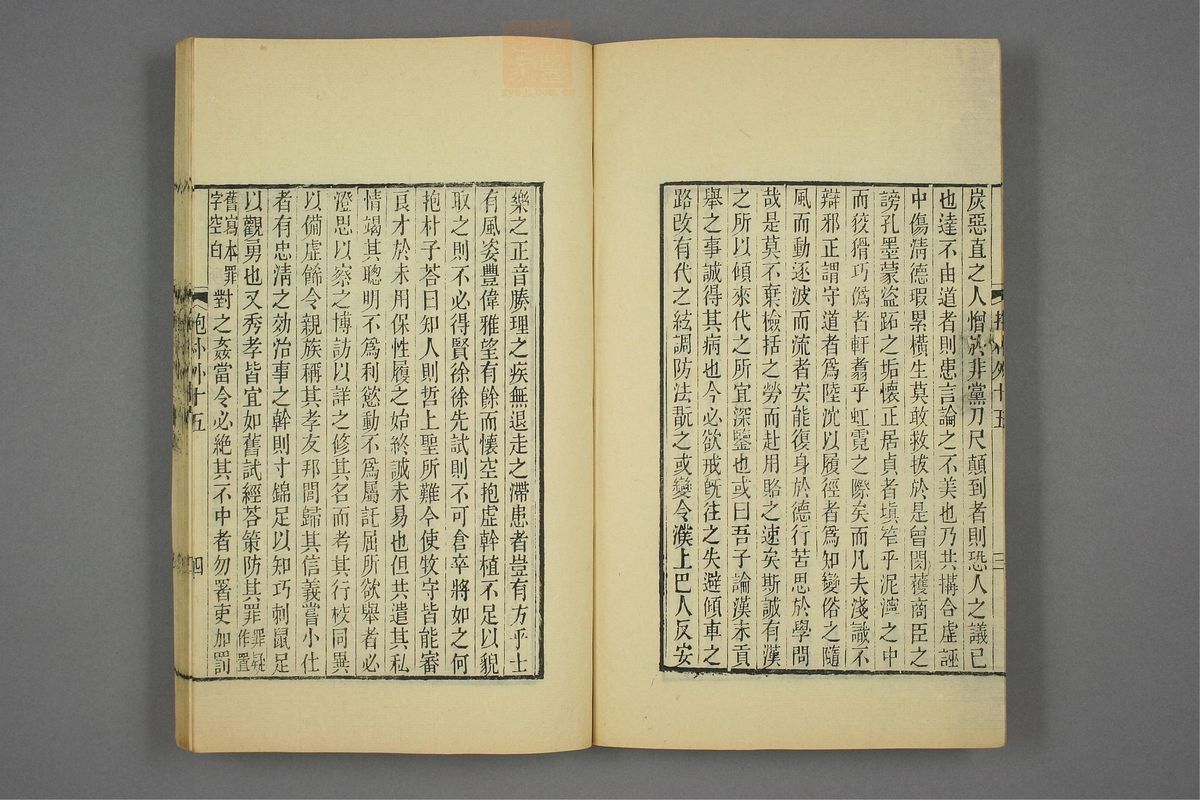 炭惡直之人憎於非黨刀尺顛到者則恐人之議已
也達不由道者則患言論之不美也乃共搆合虛誣
中傷淸德瑕累橫生莫敢救拔於是曾閔獲商臣之
謗孔墨蒙盜跖之垢懷正居貞者塡笮乎泥濘之中
而狡猾巧僞者軒翥乎虹霓之際矣而凡夫淺識不
辯邪正謂守道者爲陸沈以履徑者爲知變俗之隨
風而動逐波而流者安能復身於德行苦思於學問
哉是莫不棄檢括之勞而赴用賂之速矣斯誠有漢
之所以傾來代之所宜深鑒也或曰吾子論漢末貢
舉之事誠得其病也今必欲戒旣往之失避傾車之
路改有代之絃調防法翫之或變令濮上巴人反安
樂之正音腠理之疾無退走之滯患者豈有方乎士
有風姿豐偉雅望有餘而懷空抱虛幹植不足以貌
取之則不必得賢徐徐先試則不可倉卒將如之何
抱朴子荅曰知人則哲上聖所難今使牧守皆能審
良才於未用保性履之始終誠未易也但共遣其私
情竭其聰明不爲利慾動不爲屬託屈所欲舉者必
澄思以察之博訪以詳之修其名而考其行校同異
以備虛飾令親族稱其孝友邦閭歸其信義嘗小仕
者有忠淸之効治事之幹則寸錦足以知巧刺鼠足
以觀勇也又秀孝皆宜如舊試經荅策防其罪罪疑作置
舊寫本罪字空白對之姦當令必絶其不中者勿署吏加罰
抱朴外十五
四